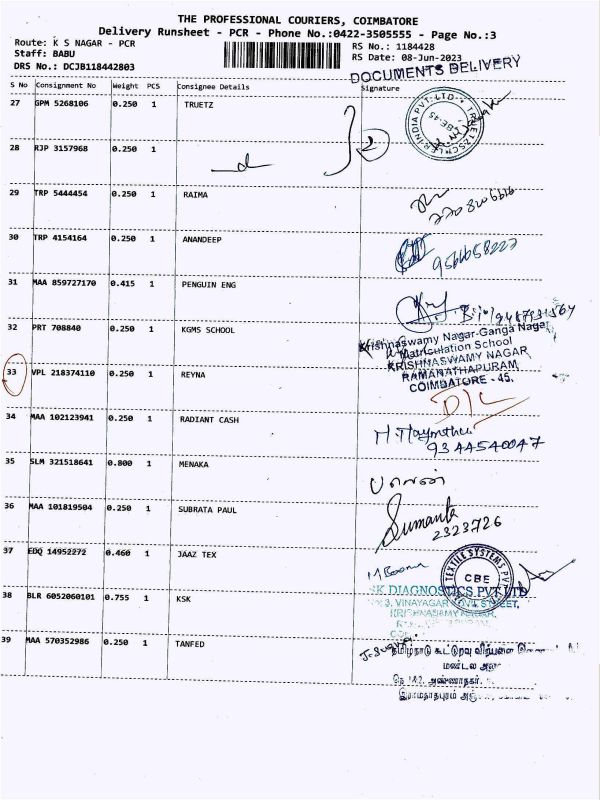 THE PROFESSIONAL COURIERS, COIMBATORE
Delivery Runsheet - PCR - Phone No.:0422-3505555 - Page No.:3
Route: K S NAGAR - PCR
Staff: BABU
DRS No.: DCJB118442803
RS No.: 1184428
RS Date: 08-Jun-2023
DOCUMENTS DELIVERY
S No Consignment No Weight PCS Consignee Details Signature
27 GPM 5268106 0.250 1 TRUETZ
28 RJP 3157968 0.250 1
2
29 TRP 5444454 0.250 1 RAIMA
30 TRP 4154164 0.250 1 ANANDEEP
9566658227
31 MAA 859727170 0.415 1 PENGUIN ENG
32 PRT 708840 0.250 1 KGMS SCHOOL
Krishnaswamy Nagar-Ganga Nagar
Matriculation School
KRISHNASWAMY NAGAR
RAMANATHAPURAM,
COIMBATORE - 45.
33 VPL 218374110 0.250 1 REYNA
D/L
34 MAA 102123941 0.250 1 RADIANT CASH
9344540047
35 SLM 321518641 0.800 1 MENAKA
36 MAA 101819504 0.250 1 SUBRATA PAUL
Sumanta
2323726
37 EDQ 14952272 0.460 1 JAAZ TEX
TEXTILE SYSTEMS PVT
CBE
38 BLR 6052060101 0.755 1 KSK
SK DIAGNOSTICS PVT LTD
3, VINAYAGAR KOVIL STREET,
KRISHNASAMY NAGAR,
39 MAA 570352986 0.250 1 TANFED
தமிழ்நாடு கூட்டுறவு விற்பனை
மண்டல
அண்ணாநகர்.
இராமநாதபுரம்